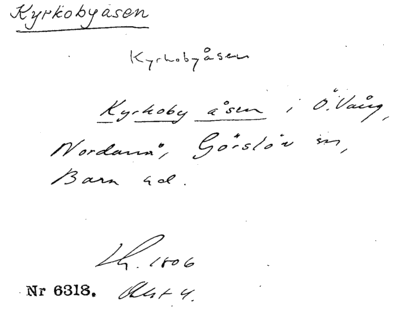 Kyrkobyåsen
Kyrkobyåsen
Kyrkoby åsen i Ö. Vång,
Nordanå, Görslöv sn,
Bara hd.
1806
Nr 6318. Akt 4.